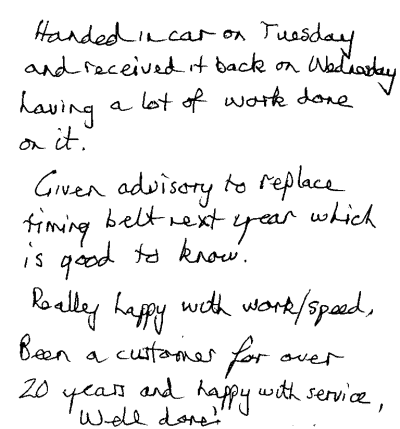 Handed in car on Tuesday
and received it back on Wednesday
having a lot of work done
on it.
Given advisory to replace
timing belt next year which
is good to know.
Really happy with work/speed,
Been a customer for over
20 years and happy with service,
Well done!